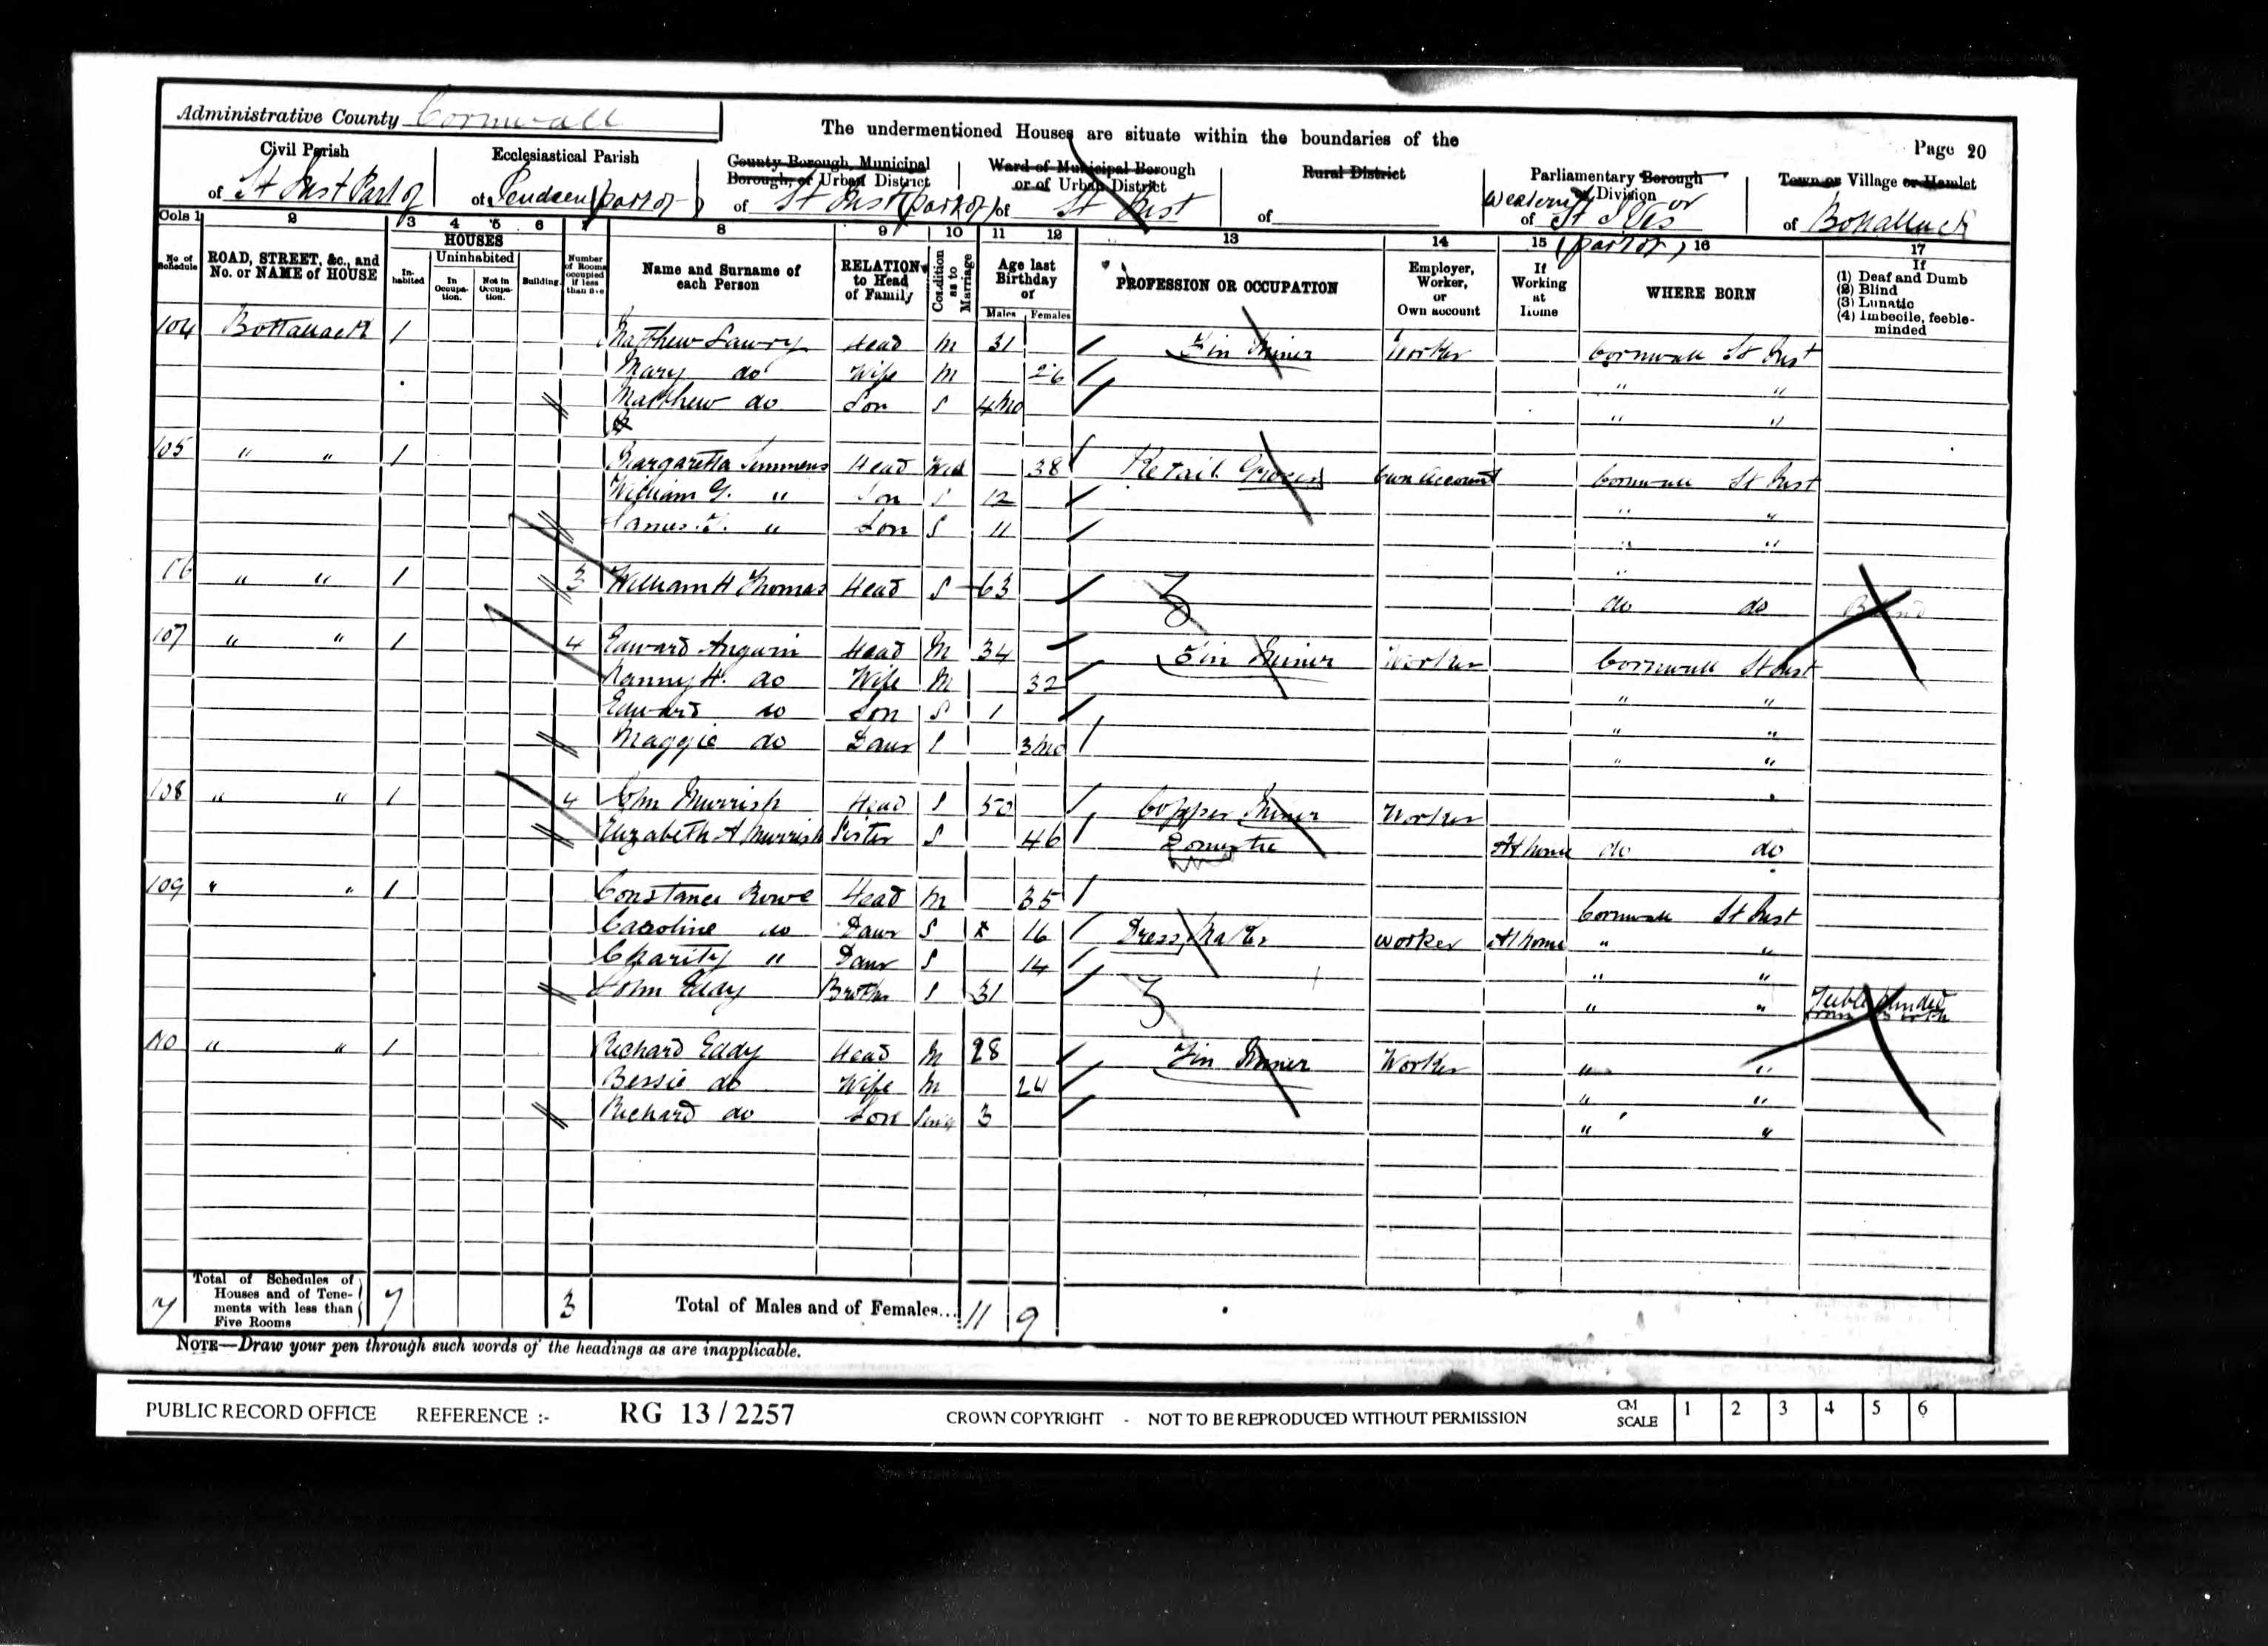 Administrative County Cornwall
The undermentioned Houses are situate within the boundaries of the
Page 20
Civil Parish of St Just Part of
Ecclesiastical Parish of Pendeen (part of)
County Borough, Municipal Borough, or Urban District of St Just (part of)
Ward of Municipal Borough or of Urban District of St Just
Rural District of
Parliamentary Borough or Division of Western or St Ives (part of)
Town or Village or Hamlet of Botallack
Cols 1 2 3 4 5 6 7 8 9 10 11 12 13 14 15 16 17
No of Schedule
ROAD, STREET, &c., and No. or NAME of HOUSE
HOUSES
Inhabited
Uninhabited
In Occupation.
Not in Occupation.
Building
Number of Rooms occupied if less than five
Name and Surname of each Person
RELATION to Head of Family
Condition as to Marriage
Age last Birthday of
Males Females
PROFESSION OR OCCUPATION
Employer, Worker, or Own account
If Working at Home
WHERE BORN
If
(1) Deaf and Dumb
(2) Blind
(3) Lunatic
(4) Imbecile, feeble-minded
104 Bottallack 1 Matthew Lawry Head M 31 Tin Miner Worker Cornwall St Just
Mary do Wife M 26 " "
Matthew do Son S 4mo " "
105 " " 1 Margaretta Semmens Head Wid 38 Retail Grocer Own Account Cornwall St Just
William G. " Son S 12 " "
James " Son S 11 " "
106 " " 1 3 William H Thomas Head S 63 do do Blind
107 " " 1 4 Edward Angwin Head M 34 Tin Miner Worker Cornwall St Just
Nanny H. do Wife M 32 " "
Edward do Son S 1 " "
Maggie do Daur S 3mo " "
108 " " 1 4 John Murrish Head S 50 Copper Miner Worker
Elizabeth A Murrish Sister S 46 Domestic At home do do
109 " " 1 Constance Rowe Head M 35 Cornwall St Just
Caroline do Daur S 16 Dress Maker Worker At home " "
Charity " Daur S 14 " "
John Eddy Brother S 31 " " Feeble minded from Birth
110 " " 1 Richard Eddy Head M 28 Tin Miner Worker " "
Bessie do Wife M 24 " "
Richard do Son Sing 3 " "
7 Total of Schedules of Houses and of Tenements with less than Five Rooms 7 3 Total of Males and of Females... 11 9
NOTE—Draw your pen through such words of the headings as are inapplicable.
PUBLIC RECORD OFFICE REFERENCE :- RG 13 / 2257 CROWN COPYRIGHT - NOT TO BE REPRODUCED WITHOUT PERMISSION CM SCALE 1 2 3 4 5 6